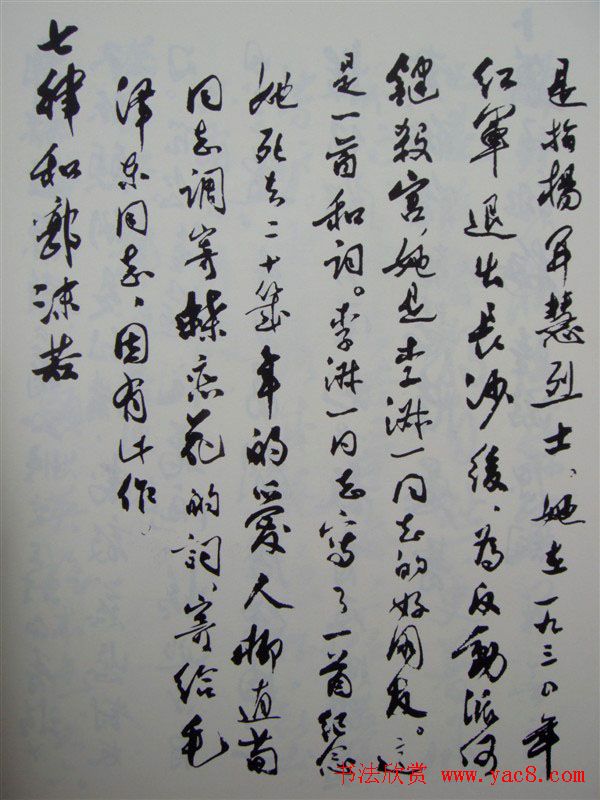 是指楊开慧烈士、她在一九三〇年
红軍退出長沙後、為反動派何
鍵殺害,她是李淑一同志的好朋友。這
是一首和词。李淑一同志寫了一首纪念
她死去二十幾年的愛人柳直荀
同志調寄蝶恋花的詞、寄给毛
泽东同志、因有此作
七律和郭沫若
书法欣赏 www.yac8.com